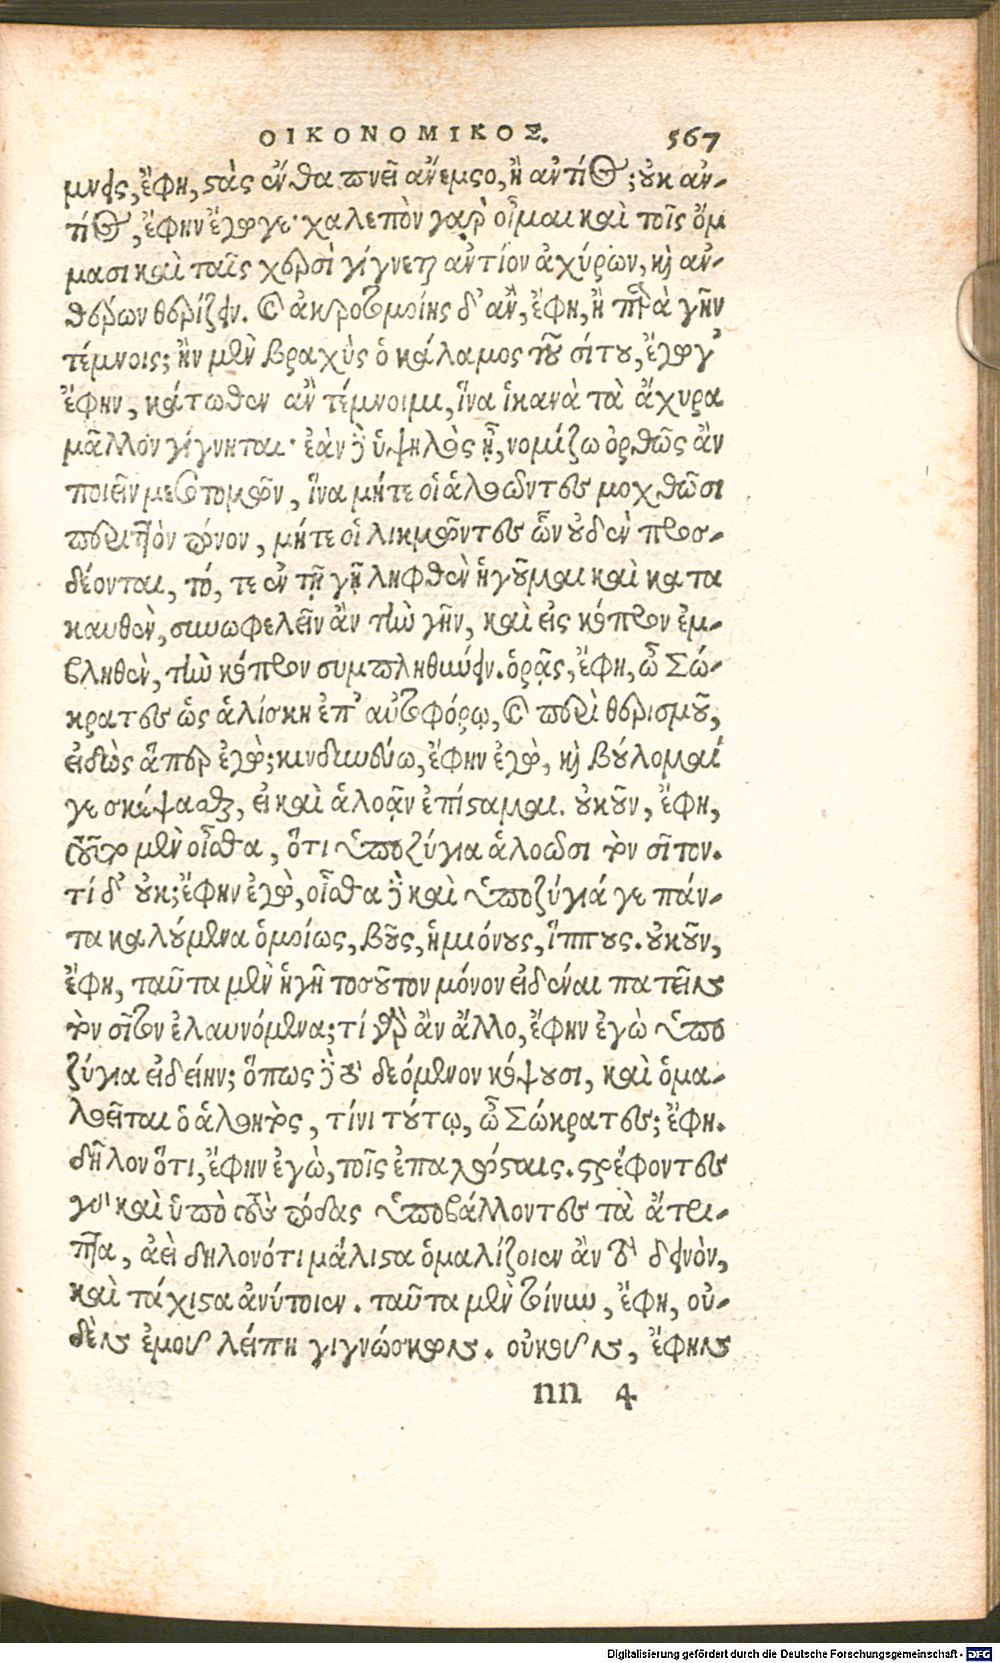 ΟΙΚΟΝΟΜΙΚΟΣ. 567
μνεις, ἔφη, στὰς ἔνθα πνεῖ ἄνεμος, ἢ ἀντίος; οὐκ ἀν-
τίος, ἔφην ἔγωγε· χαλεπὸν γαρ̀ οἶμαι καὶ τοῖς ὄμ
μασι καὶ ταῖς χερσὶ γίγνεται ἀντίον ἀχύρων, καὶ ἀν-
θέρων θερίζειν. καὶ ἀκροτομοίης δ' ἂν, ἔφη, ἢ παρὰ γῆν
τέμνοις; ἢν μὲν βραχὺς ὁ κάλαμος τοῦ σίτου, ἔγωγ'
ἔφην, κάτωθεν ἂν τέμνοιμι, ἵνα ἱκανὰ τὰ ἄχυρα
μᾶλλον γίγνηται· ἐὰν δὲ ὑψηλὸς ᾖ, νομίζω ὀρθῶς ἂν
ποιεῖν μεσοτομῶν, ἵνα μήτε οἱ ἁλοῶντες μοχθῶσι
περιττὸν πόνον, μήτε οἱ λικμῶντες ὧν οὐδὲν προσ-
δέονται, τό, τε ἐν τῇ γῇ ληφθὲν ἡγοῦμαι καὶ κατα
καυθὲν, συνωφελεῖν ἂν τὴν γῆν, καὶ εἰς κόπρον ἐμ-
βληθὲν, τὴν κόπρον συμπληθύνειν. ὁρᾷς, ἔφη, ὦ Σώ-
κρατες ὡς ἁλίσκῃ ἐπ' αὐτοφόρῳ, καὶ περὶ θερισμοῦ,
εἰδὼς ἅπερ ἐγὼ; κινδυνεύω, ἔφην ἐγὼ, καὶ βούλομαί
γε σκέψασθαι, εἰ καὶ ἁλοᾷν ἐπίσταμαι. οὐκοῦν, ἔφη,
τοῦτο μὲν οἶσθα, ὅτι ὑποζύγια ἁλοῶσι τὸν σῖτον.
τί δ' οὐκ; ἔφην ἐγὼ, οἶσθα δὲ καὶ ὑποζύγιά γε πάν-
τα καλούμενα ὁμοίως, βοῦς, ἡμιόνους, ἵππους. οὐκοῦν,
ἔφη, ταῦτα μὲν ἡγῇ τοσοῦτον μόνον εἰδέναι πατεῖν
τὸν σῖτον ἐλαυνόμενα; τί γὰρ ἂν ἄλλο, ἔφην ἐγὼ ὑπο
ζύγια εἰδείην; ὅπως δὲ τὸ δεόμενον κόψουσι, καὶ ὁμα-
λοεῖται ὁ ἁλοητὸς, τίνι τούτῳ, ὦ Σώκρατες; ἔφη.
δῆλον ὅτι, ἔφην ἐγὼ, τοῖς ἐπαλώσταις. στρέφοντες
γὰρ καὶ ὑπὸ τοὺς πόδας ὑποβάλλοντες τὰ ἄτρι-
πτα, ἀεὶ δηλονότι μάλιστα ὁμαλίζοιεν ἂν τὸ δεινὸν,
καὶ τάχιστα ἀνύτοιεν. ταῦτα μὲν τοίνυν, ἔφη, οὐ-
δὲν ἐμοῦ λείπῃ γιγνώσκων. οὐκοῦν, ἔφην
nn 4
Digitalisierung gefördert durch die Deutsche Forschungsgemeinschaft - DFG